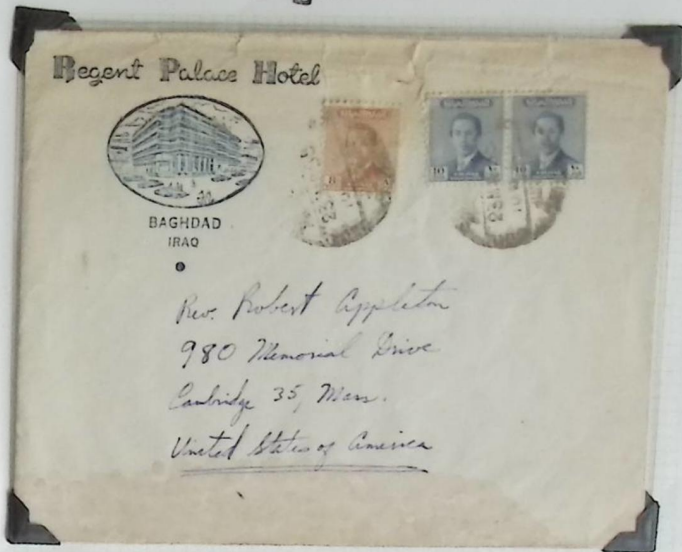 Regent Palace Hotel
BAGHDAD
IRAQ
8
10
10
Rev. Robert Appleton
980 Memorial Drive
Cambridge 35, Mass.
United States of America